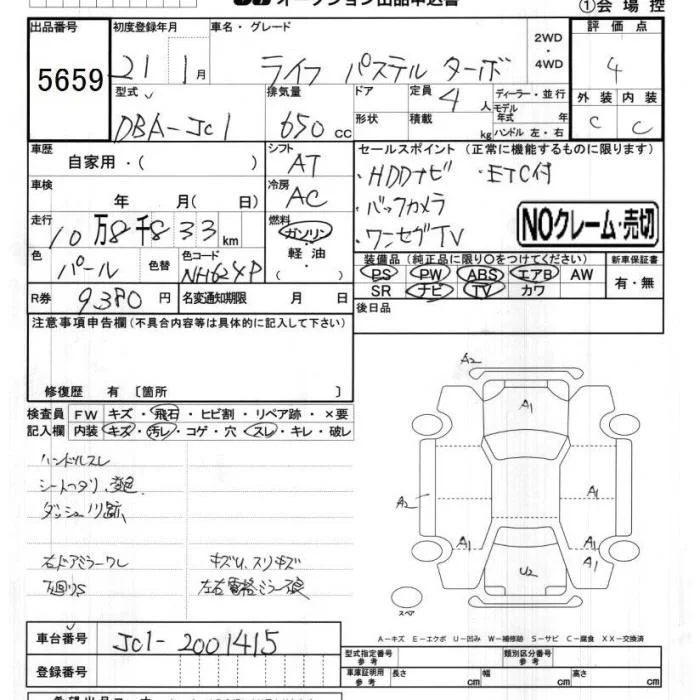 オークション出品申込書
①会場控
出品番号 初度登録年月 車名・グレード 評価点
5659 21 1月 ライフ パステル ターボ 2WD ・ 4WD 4
型式 排気量 ドア 定員 4人 ディーラー・並行 外装 内装
DBA-JC1 650 cc 形状 積載 kg モデル年式 年 ハンドル 左・右 C C
車歴 自家用・( ) シフト AT セールスポイント (正常に機能するものに限ります)
車検 年 月( 日) 冷房 AC ・HDDナビ ・ETC付
・バックカメラ
走行 10万8千833km 燃料 ガソリン・軽油・( ) ・ワンセグTV NOクレーム・売切
色 パール 色替 色コード NH624P 装備品(純正品に限り○をつけてください) 新車保証書
PS PW ABS エアB AW 有・無
SR ナビ TV カワ
R券 9380円 名変通知期限 月 日 後日品
注意事項申告欄(不具合内容等は具体的に記入して下さい)
修復歴 有 〔箇所 〕
検査員 FW キズ・飛石・ヒビ割・リペア跡・×要
記入欄 内装 キズ・汚レ・コゲ・穴・スレ・キレ・破レ
ハンドルスレ
シートヘタリ、変色
ダッシュノリ跡
右ドアミラーワレ キズU、スリキズ
下廻りS 左右電格ミラー不良
A2
A1
A2 A1
A1 A1 A1
U2 A1
スペア
A-キズ E-エクボ U-凹み W-補修跡 S-サビ C-腐食 XX-交換済
車台番号 JC1-2001415
型式指定番号 参考 類別区分番号 参考
登録番号 車庫証明用 参考 長さ cm 幅 cm 高さ cm